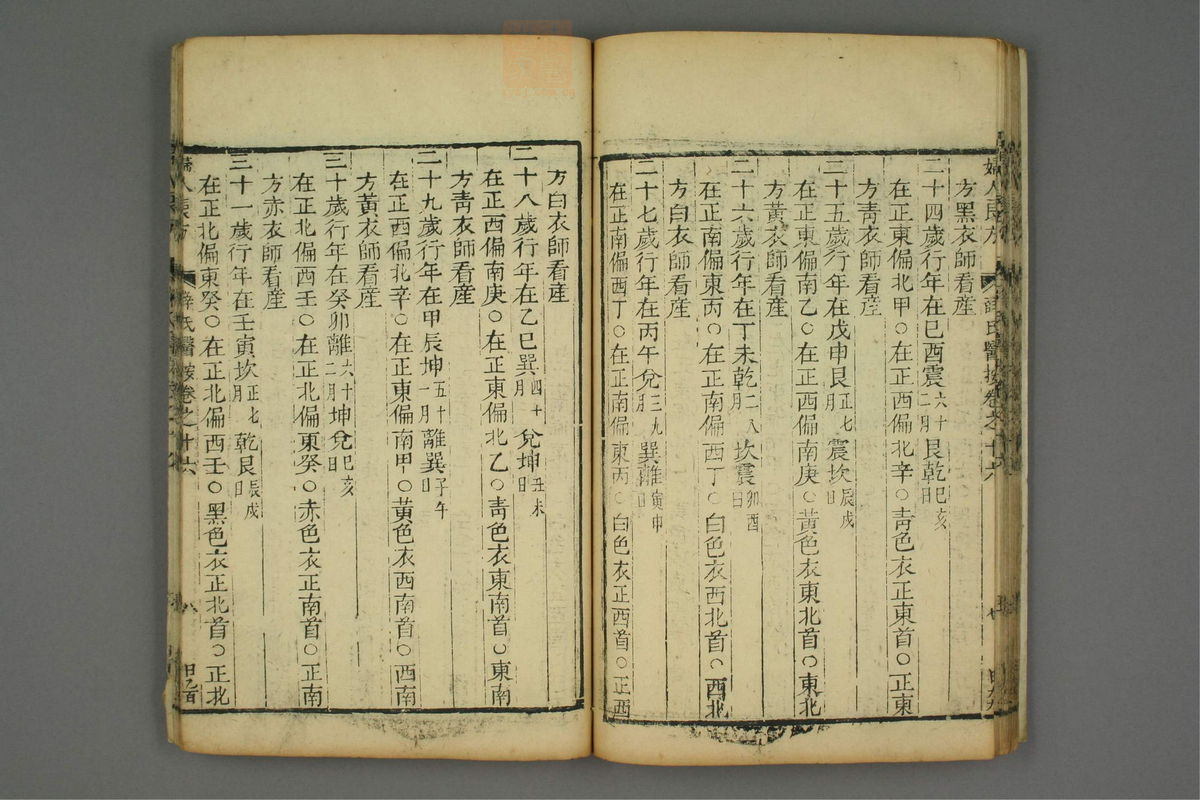 婦人良方 薛氏醫按卷之十六
方黑衣師看産
二十四歲行年在己酉震六十二月艮乾巳亥日
在正東偏北甲○在正西偏北辛○靑色衣正東首○正東
方靑衣師看産
二十五歲行年在戊申艮正七月震坎辰戌日
在正東偏南乙○在正西偏南庚○黃色衣東北首○東北
方黃衣師看産
二十六歲行年在丁未乾二八月坎震卯酉日
在正南偏東丙○在正南偏西丁○白色衣西北首○西北
方白衣師看産
二十七歲行年在丙午兌三九月巽離寅申日
在正南偏西丁○在正南偏東丙○白色衣正西首○正西
方白衣師看産
二十八歲行年在乙巳巽四十月兌坤丑未日
在正西偏南庚○在正東偏北乙○靑色衣東南首○東南
方靑衣師看産
二十九歲行年在甲辰坤五十一月離巽子午日
在正西偏北辛○在正東偏南甲○黃色衣西南首○西南
方黃衣師看産
三十歲行年在癸卯離六十二月坤兌巳亥日
在正北偏西壬○在正北偏東癸○赤色衣正南首○正南
方赤衣師看産
三十一歲行年在壬寅坎正七月乾艮辰戌日
在正北偏東癸○在正北偏西壬○黑色衣正北首○正北
婦人良方 薛氏醫按卷之十六 八